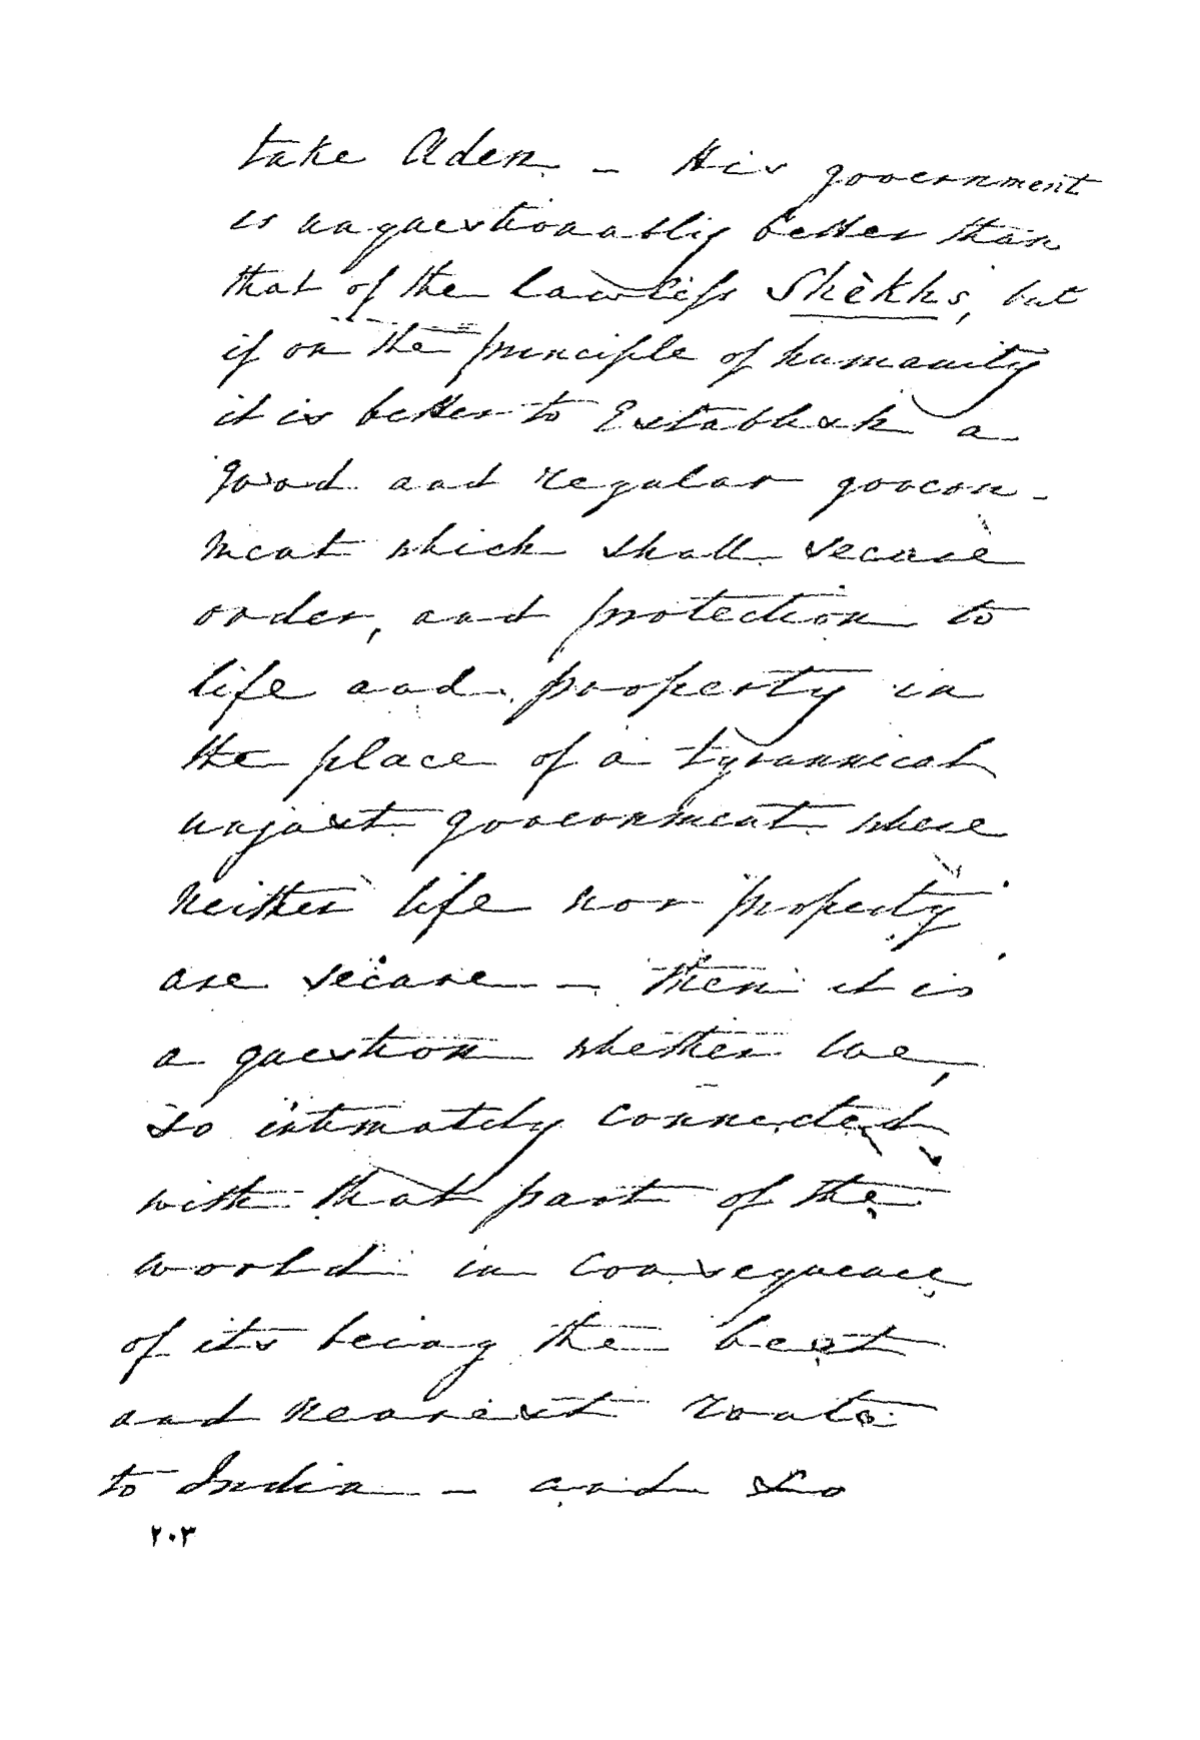 take Aden. – His government
is unquestionably better than
that of the lawless Shèkhs, but
if on the principle of humanity
it is better to Establish a
good and regular govern-
ment which shall secure
order, and protection to
life and property in
the place of a tyrannical
unjust government where
neither life nor property
are secure – then it is
a question whether we,
so intimately connected
with that part of the
world in consequence
of its being the best
and nearest route
to India – and so
٢٠٣